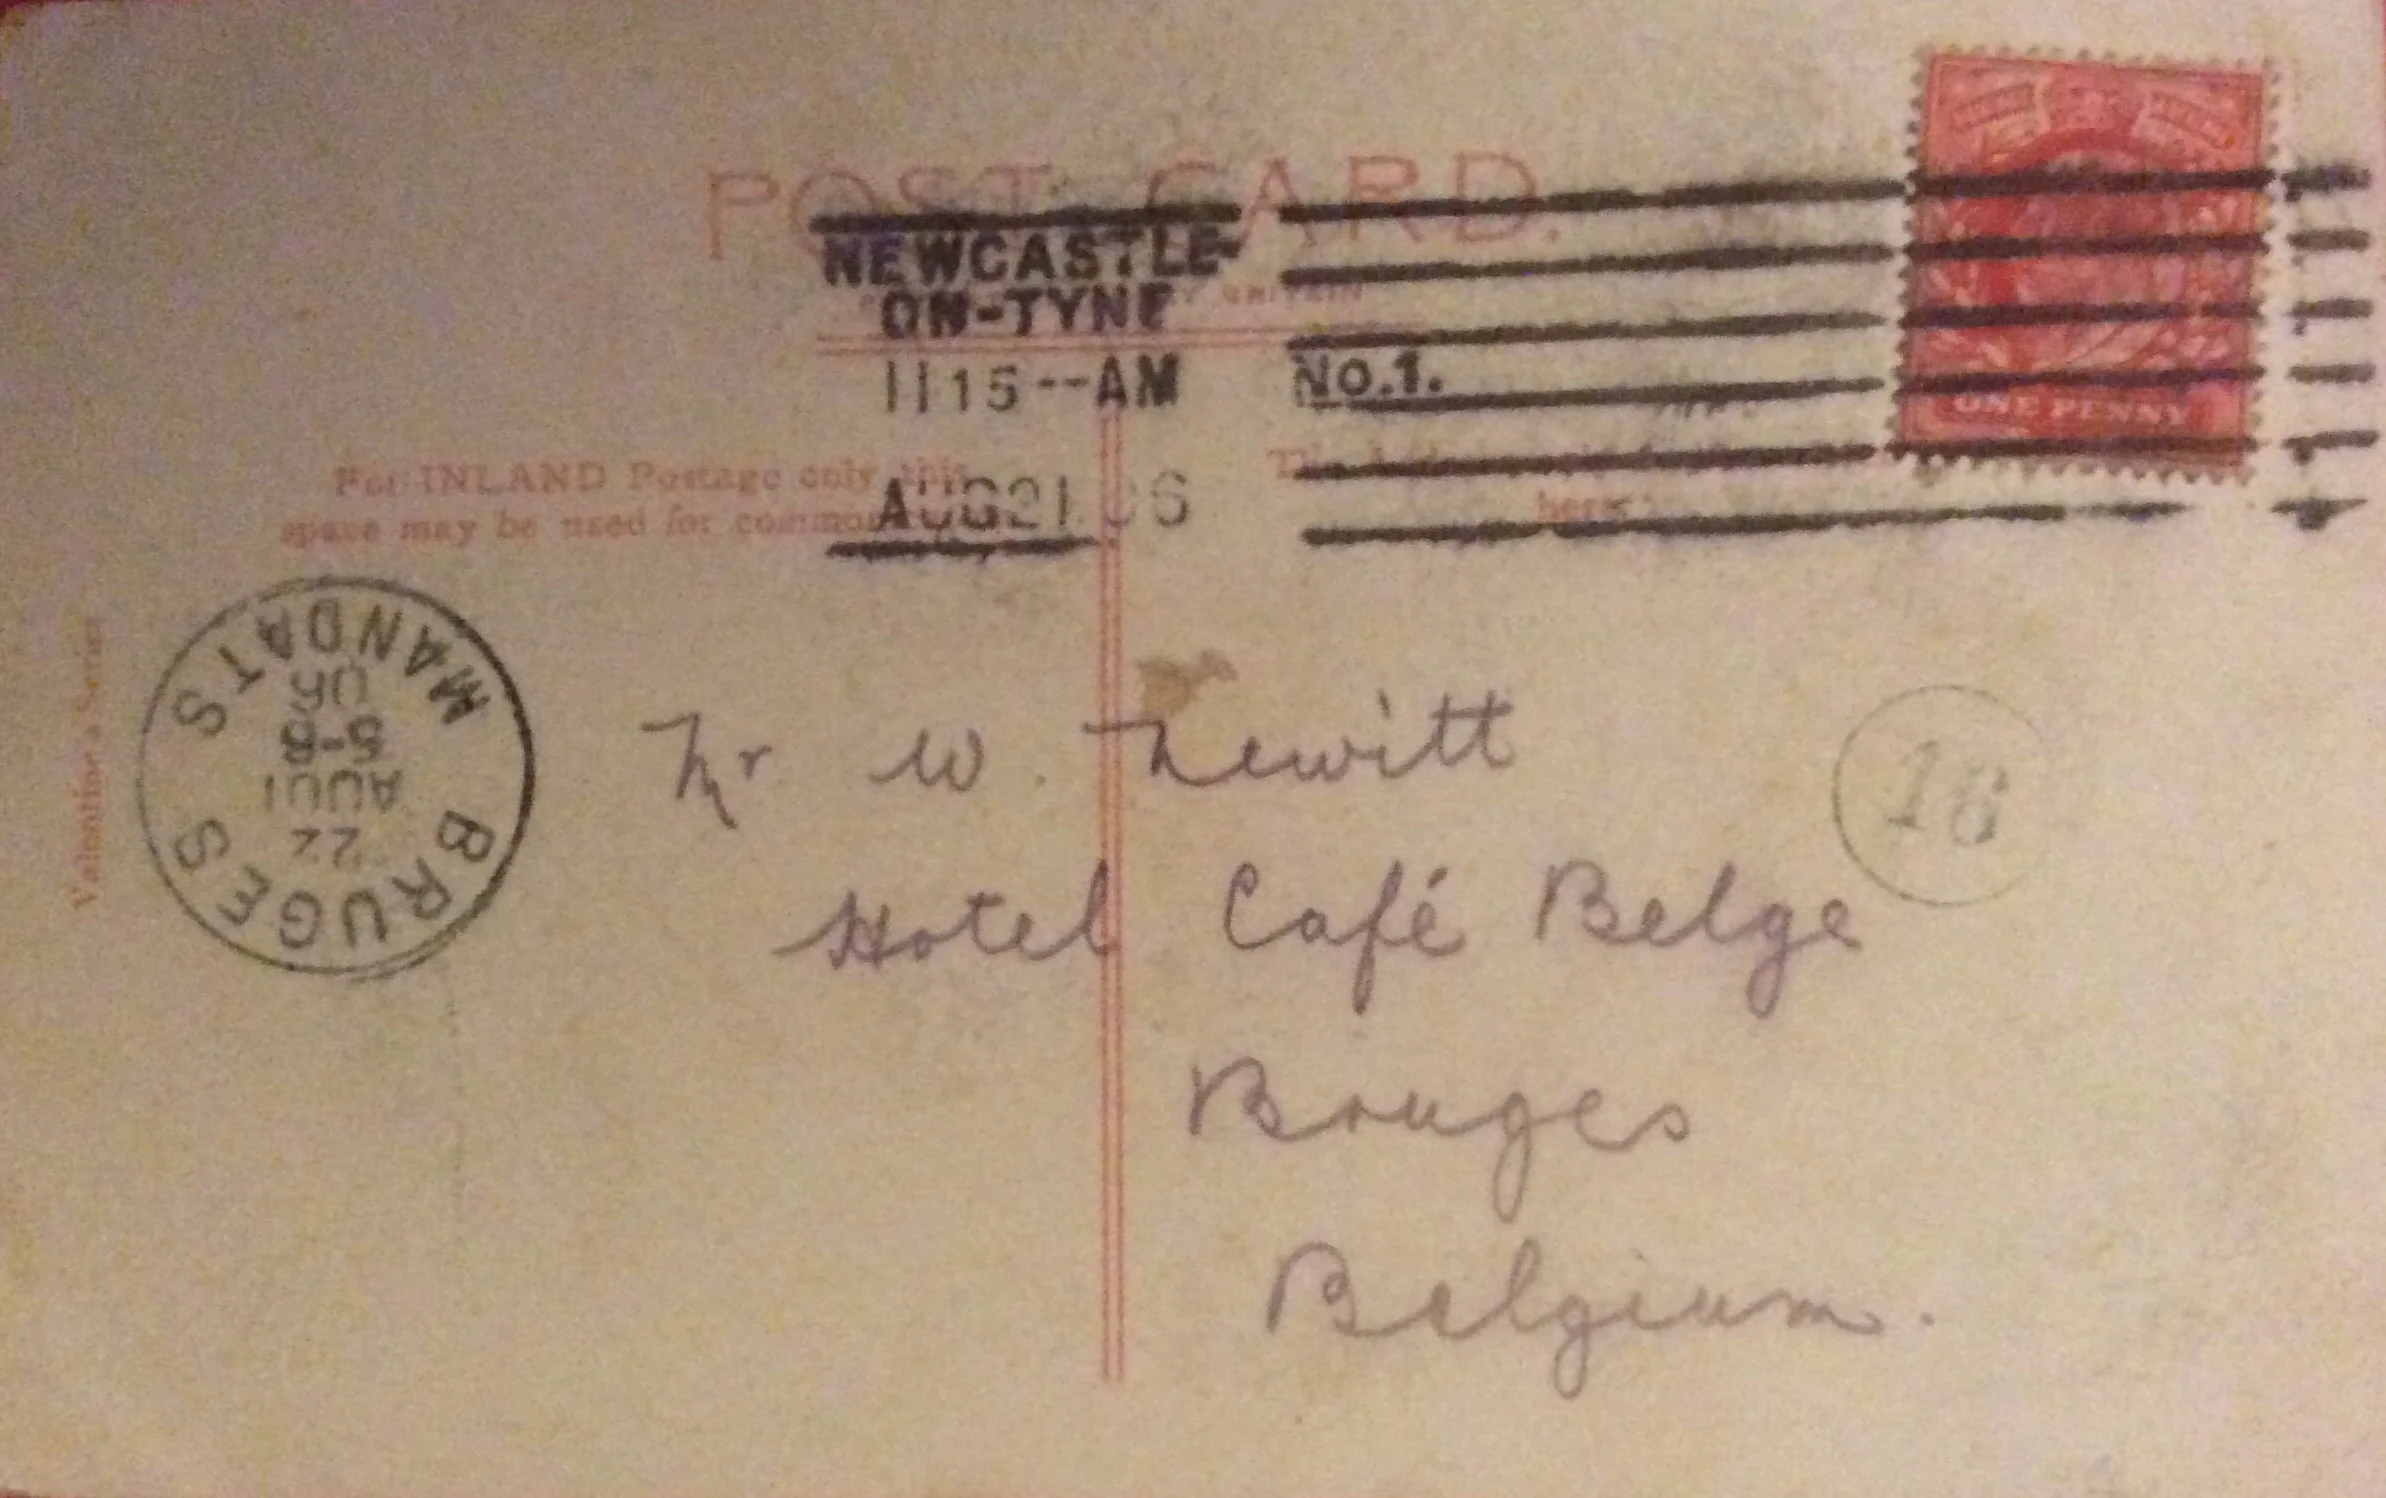 POST CARD.
NEWCASTLE-
ON-TYNE
11 15--AM
AUG 21 06
No.1.
ONE PENNY
For INLAND Postage only this
space may be used for
The
here
Valentine's Series
BRUGES
22
AOUT
5-6
06
MANDATS
Mr W. Hewitt
16
Hotel Café Belge
Bruges
Belgium.